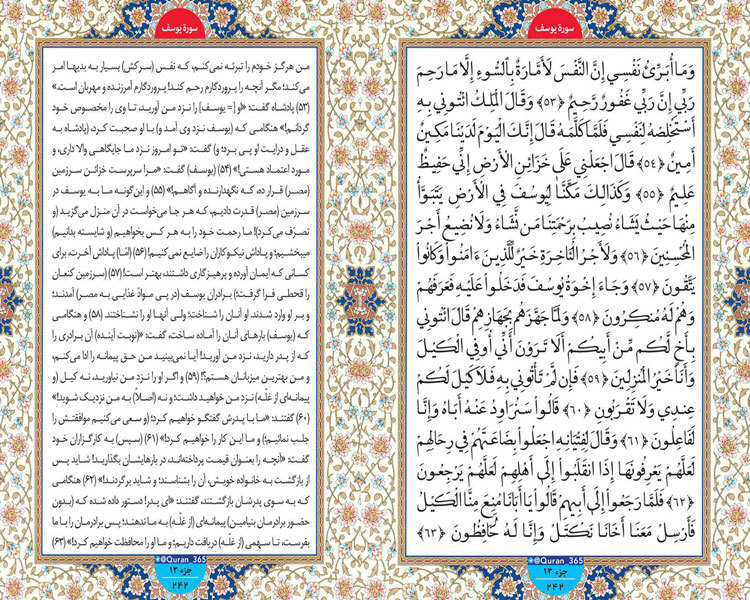 سورة یوسف
وَمَا أُبَرِّئُ نَفْسِي إِنَّ النَّفْسَ لَأَمَّارَةٌ بِالسُّوءِ إِلَّا مَا رَحِمَ
رَبِّي إِنَّ رَبِّي غَفُورٌ رَحِيمٌ ﴿۵۳﴾ وَقَالَ الْمَلِكُ ائْتُونِي بِهِ
أَسْتَخْلِصْهُ لِنَفْسِي فَلَمَّا كَلَّمَهُ قَالَ إِنَّكَ الْيَوْمَ لَدَيْنَا مَكِينٌ
أَمِينٌ ﴿۵۴﴾ قَالَ اجْعَلْنِي عَلَى خَزَائِنِ الْأَرْضِ إِنِّي حَفِيظٌ
عَلِيمٌ ﴿۵۵﴾ وَكَذَالِكَ مَكَّنَّا لِيُوسُفَ فِي الْأَرْضِ يَتَبَوَّأُ
مِنْهَا حَيْثُ يَشَاءُ نُصِيبُ بِرَحْمَتِنَا مَن نَّشَاءُ وَلَا نُضِيعُ أَجْرَ
الْمُحْسِنِينَ ﴿۵۶﴾ وَلَأَجْرُ الْآخِرَةِ خَيْرٌ لِّلَّذِينَ ءَامَنُوا وَكَانُوا
يَتَّقُونَ ﴿۵۷﴾ وَجَاءَ إِخْوَةُ يُوسُفَ فَدَخَلُوا عَلَيْهِ فَعَرَفَهُمْ
وَهُمْ لَهُ مُنكِرُونَ ﴿۵۸﴾ وَلَمَّا جَهَّزَهُم بِجَهَازِهِمْ قَالَ ائْتُونِي
بِأَخٍ لَّكُم مِّنْ أَبِيكُمْ أَلَا تَرَوْنَ أَنِّي أُوفِي الْكَيْلَ
وَأَنَا خَيْرُ الْمُنزِلِينَ ﴿۵۹﴾ فَإِن لَّمْ تَأْتُونِي بِهِ فَلَا كَيْلَ لَكُمْ
عِندِي وَلَا تَقْرَبُونِ ﴿۶۰﴾ قَالُوا سَنُرَاوِدُ عَنْهُ أَبَاهُ وَإِنَّا
لَفَاعِلُونَ ﴿۶۱﴾ وَقَالَ لِفِتْيَانِهِ اجْعَلُوا بِضَاعَتَهُمْ فِي رِحَالِهِمْ
لَعَلَّهُمْ يَعْرِفُونَهَا إِذَا انقَلَبُوا إِلَى أَهْلِهِمْ لَعَلَّهُمْ يَرْجِعُونَ
﴿۶۲﴾ فَلَمَّا رَجَعُوا إِلَى أَبِيهِمْ قَالُوا يَا أَبَانَا مُنِعَ مِنَّا الْكَيْلُ
فَأَرْسِلْ مَعَنَا أَخَانَا نَكْتَلْ وَإِنَّا لَهُ لَحَافِظُونَ ﴿۶۳﴾
@Quran_365
جزء ۱۳
۲۴۲
سورة یوسف
من هرگز خودم را تبرئه نمی‌کنم، که نفس (سرکش) بسیار به بدیها امر
می‌کند؛ مگر آنچه را پروردگارم رحم کند! پروردگارم آمرزنده و مهربان است.»
(۵۳) پادشاه گفت: «او [= یوسف] را نزد من آورید، تا وی را مخصوص خود
گردانم!» هنگامی که (یوسف نزد وی آمد و) با او صحبت کرد، (پادشاه به
عقل و درایت او پی برد؛ و) گفت: «تو امروز نزد ما جایگاهی والا داری، و
مورد اعتماد هستی!» (۵۴) (یوسف) گفت: «مرا سرپرست خزائن سرزمین
(مصر) قرار ده، که نگهدارنده و آگاهم!» (۵۵) و این‌گونه ما به یوسف در
سرزمین (مصر) قدرت دادیم، که هر جا می‌خواست در آن منزل می‌گزید (و
تصرف می‌کرد)! ما رحمت خود را به هر کس بخواهیم (و شایسته بدانیم)
میبخشیم؛ و پاداش نیکوکاران را ضایع نمی‌کنیم! (۵۶) (امّا) پاداش آخرت، برای
کسانی که ایمان آورده و پرهیزگاری داشتند، بهتر است! (۵۷) (سرزمین کنعان
را قحطی فرا گرفت؛) برادران یوسف (در پی موادّ غذایی به مصر) آمدند؛
و بر او وارد شدند. او آنان را شناخت؛ ولی آنها او را نشناختند. (۵۸) و هنگامی
که (یوسف) بارهای آنان را آماده ساخت، گفت: «(نوبت آینده) آن برادری را
که از پدر دارید، نزد من آورید! آیا نمی‌بینید من حق پیمانه را ادا می‌کنم،
و من بهترین میزبانان هستم؟! (۵۹) و اگر او را نزد من نیاورید، نه کیل (و
پیمانه‌ای از غلّه) نزد من خواهید داشت؛ و نه (اصلاً) به من نزدیک شوید!»
(۶۰) گفتند: «ما با پدرش گفتگو خواهیم کرد؛ (و سعی می‌کنیم موافقتش را
جلب نمائیم؛) و ما این کار را خواهیم کرد!» (۶۱) (سپس) به کارگزاران خود
گفت: «آنچه را بعنوان قیمت پرداخته‌اند، در بارهایشان بگذارید! شاید پس
از بازگشت به خانواده خویش، آن را بشناسند؛ و شاید برگردند!» (۶۲) هنگامی
که به سوی پدرشان بازگشتند، گفتند: «ای پدر! دستور داده شده که (بدون
حضور برادرمان بنیامین) پیمانه‌ای (از غلّه) به ما ندهند؛ پس برادرمان را با ما
بفرست، تا سهمی (از غلّه) دریافت داریم؛ و ما او را محافظت خواهیم کرد!» (۶۳)
@Quran_365
جزء ۱۳
۲۴۲